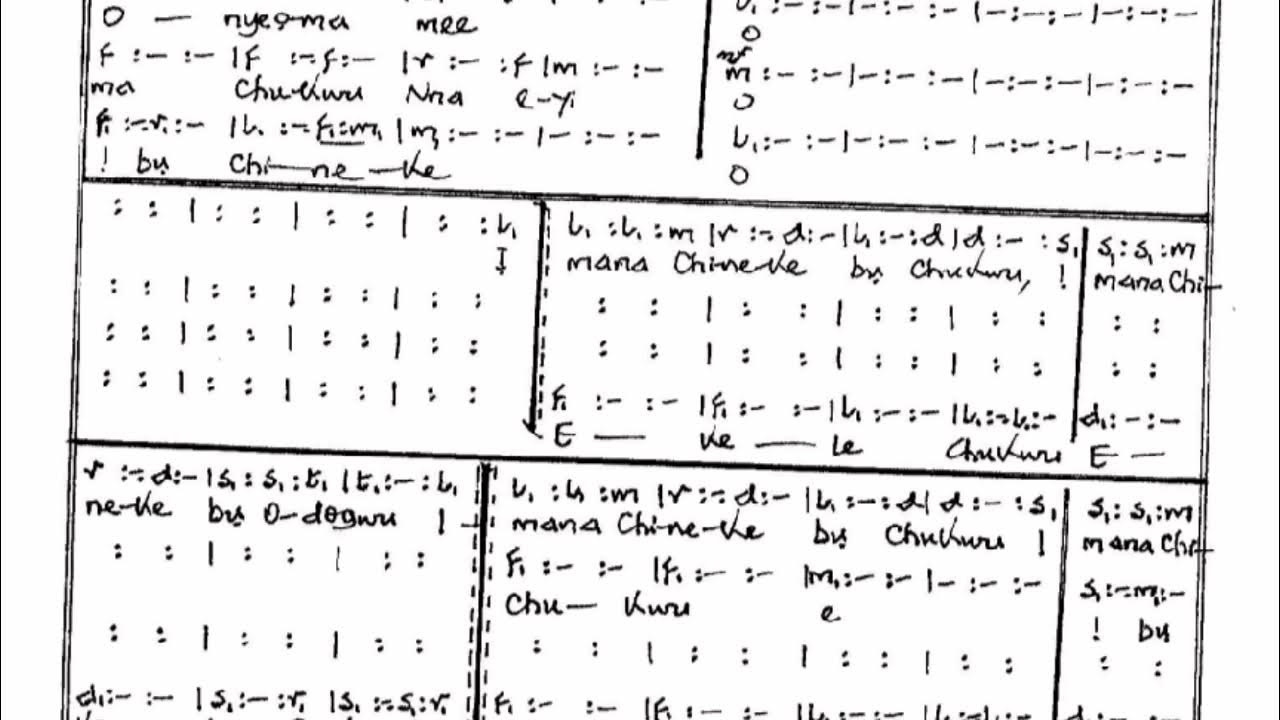 O — nyeọma mee
f :– :– |f :–f:– |r :– :f |m :– :–
ma Chukwu Nna e-yi
f₁ :–r₁:– |l₁ :–f₁:m₁ |m₁ :– :– |– :– :–
! bụ Chi—ne—ke
l₁ :– :– |– :– :– |– :– :– |– :– :–
O
mf
m :– :– |– :– :– |– :– :– |– :– :–
O
l₁ :– :– |– :– :– |– :– :– |– :– :–
O
: : | : : | : : | : :l₁
I
: : | : : | : : | : :
: : | : : | : : | : :
: : | : : | : : | : :
l₁ :l₁ :m |r :–d:– |l₁ :– :d |d :– :s₁
mana Chi-ne-ke bụ Chukwu, !
: : | : : | : : | : :
: : | : : | : : | : :
f₁ :– :– |f₁ :– :– |l₁ :– :– |l₁ :–l₁:–
E — ke — le Chukwu
s₁ : s₁ :m
mana Chi-
: :
: :
d₁ :– :–
E —
r :–d:– |s₁ : s₁ :t₁ |t₁ :– :l₁
ne-ke bụ O-dogwu |
: : | : : | : :
: : | : : | : :
d₁ :– :– |s₁ :– :r₁ |s₁ :–s₁:r₁
l₁ :l₁ :m |r :–d:– |l₁ :– :d |d :– :s₁
mana Chi-ne-ke bụ Chukwu |
f₁ :– :– |f₁ :– :– |m₁ :– :– |– :– :–
Chu— kwu e
: : | : : | : : | : :
s₁ : s₁ :m
mana Chi-
s₁ :–m₁:–
! bụ
: :